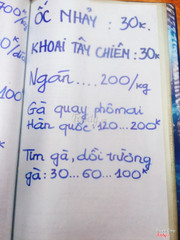 ỐC NHẢY : 30K.
KHOAI TÂY CHIÊN : 30K
Ngán....200/kg
Gà quay phômai
Hàn quốc 120...200K
Tim gà, dồi trường
gà : 30...60...100K